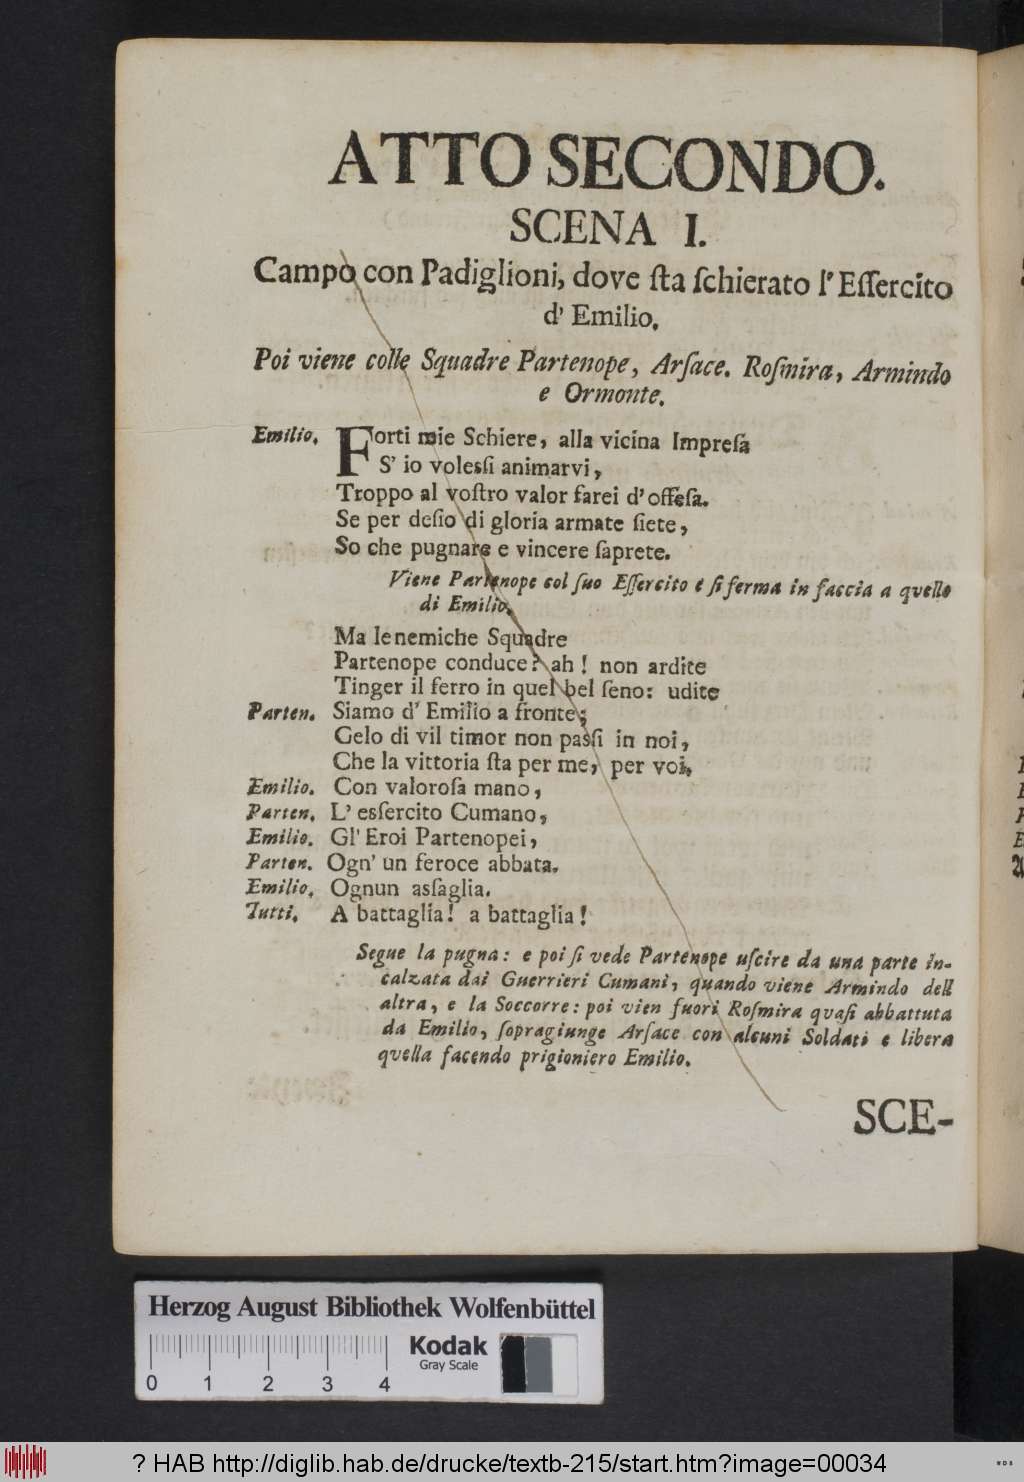 ATTO SECONDO.
SCENA I.
Campo con Padiglioni, dove ſta ſchierato l' Eſſercito
d' Emilio.
Poi viene colle Squadre Partenope, Arſace. Roſmira, Armindo
e Ormonte.
Emilio. Forti mie Schiere, alla vicina Impreſa
S' io volesſi animarvi,
Troppo al voſtro valor farei d' offeſa.
Se per deſio di gloria armate ſiete,
So che pugnare e vincere ſaprete.
Viene Partenope col ſuo Eſſercito e ſi ferma in faccia a quello
di Emilio.
Ma le nemiche Squadre
Partenope conduce? ah! non ardite
Tinger il ferro in quel bel ſeno: udite
Parten. Siamo d' Emilio a fronte;
Gelo di vil timor non pasſi in noi,
Che la vittoria ſta per me, per voi,
Emilio. Con valoroſa mano,
Parten. L' esſercito Cumano,
Emilio. Gl' Eroi Partenopei,
Parten. Ogn' un feroce abbata.
Emilio. Ognun asſaglia.
Tutti. A battaglia! a battaglia!
Segue la pugna: e poi ſi vede Partenope uſcire da una parte in-
calzata dai Guerrieri Cumani, quando viene Armindo dell
altra, e la Soccorre: poi vien fuori Roſmira quaſi abbattuta
da Emilio, ſopragiunge Arſace con alcuni Soldati e libera
quella facendo prigioniero Emilio.
SCE-
Herzog August Bibliothek Wolfenbüttel
Kodak
Gray Scale
0 1 2 3 4
? HAB http://diglib.hab.de/drucke/textb-215/start.htm?image=00034